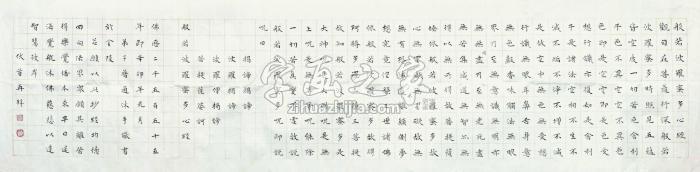 般若波羅蜜多心經
觀自在菩薩行深般若
波羅蜜多時照見五蘊
皆空度一切苦厄舍利
子色不異空空不異色
色即是空空即是色受
想行識亦復如是舍利
子是諸法空相不生不
滅不垢不淨不增不減
是故空中無色無受想
行識無眼耳鼻舌身意
無色聲香味觸法無眼
界乃至無意識界無無
明亦無無明盡乃至無
老死亦無老死盡無苦
集滅道無智亦無得以
無所得故菩提薩埵
依般若波羅蜜多故
心無罣礙無罣礙故
無有恐怖遠離顛倒夢
想究竟涅槃三世諸佛
依般若波羅蜜多故得
阿耨多羅三藐三菩提
故知般若波羅蜜多是
大神呪是大明呪是無
上呪是無等等呪能除
一切苦真實不虛故說
般若波羅蜜多呪即說
呪曰
揭諦揭諦
波羅揭諦
波羅僧揭諦
菩提薩婆訶
般若波羅蜜多心經
佛曆二千五百五十五
年即辛卯年元月
弟子普通沐手敬書
於金陵
願以此抄經功德
回向法界衆願其離苦
得樂覺悟本來早日達
海覺航沐佛慈悲以達
智慧彼岸
伏首再拜
字画之家
zihuazhijia.com